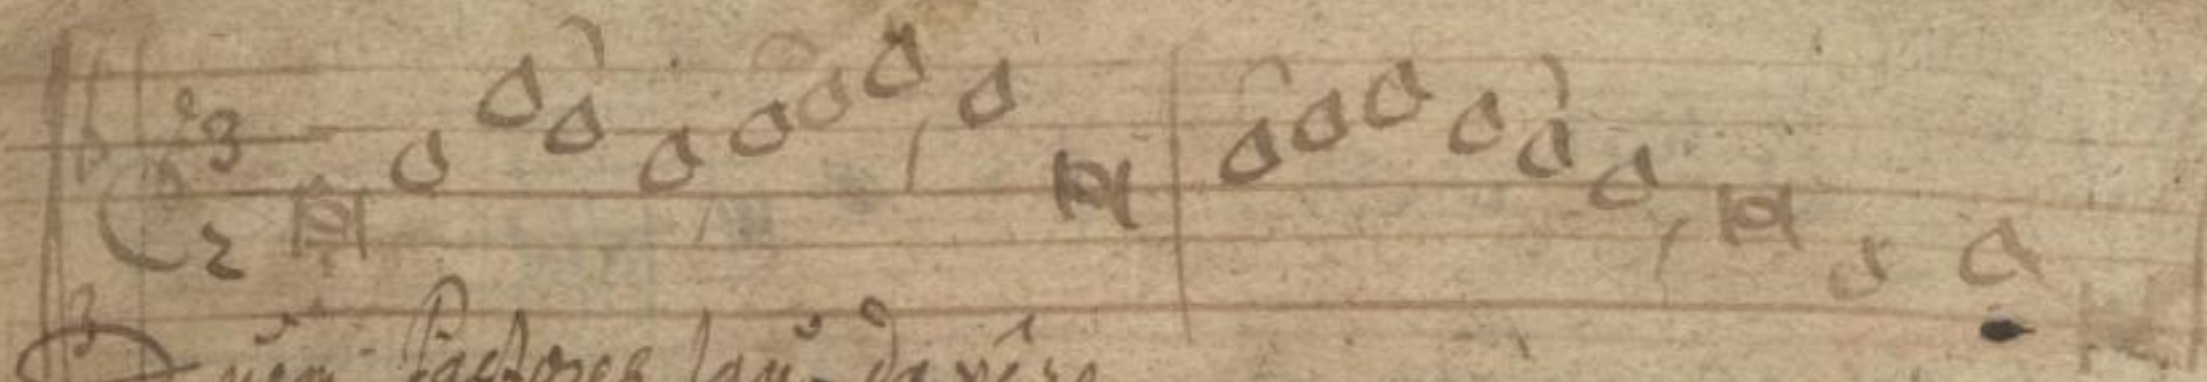 3
2
Quem Pastores lau-davere